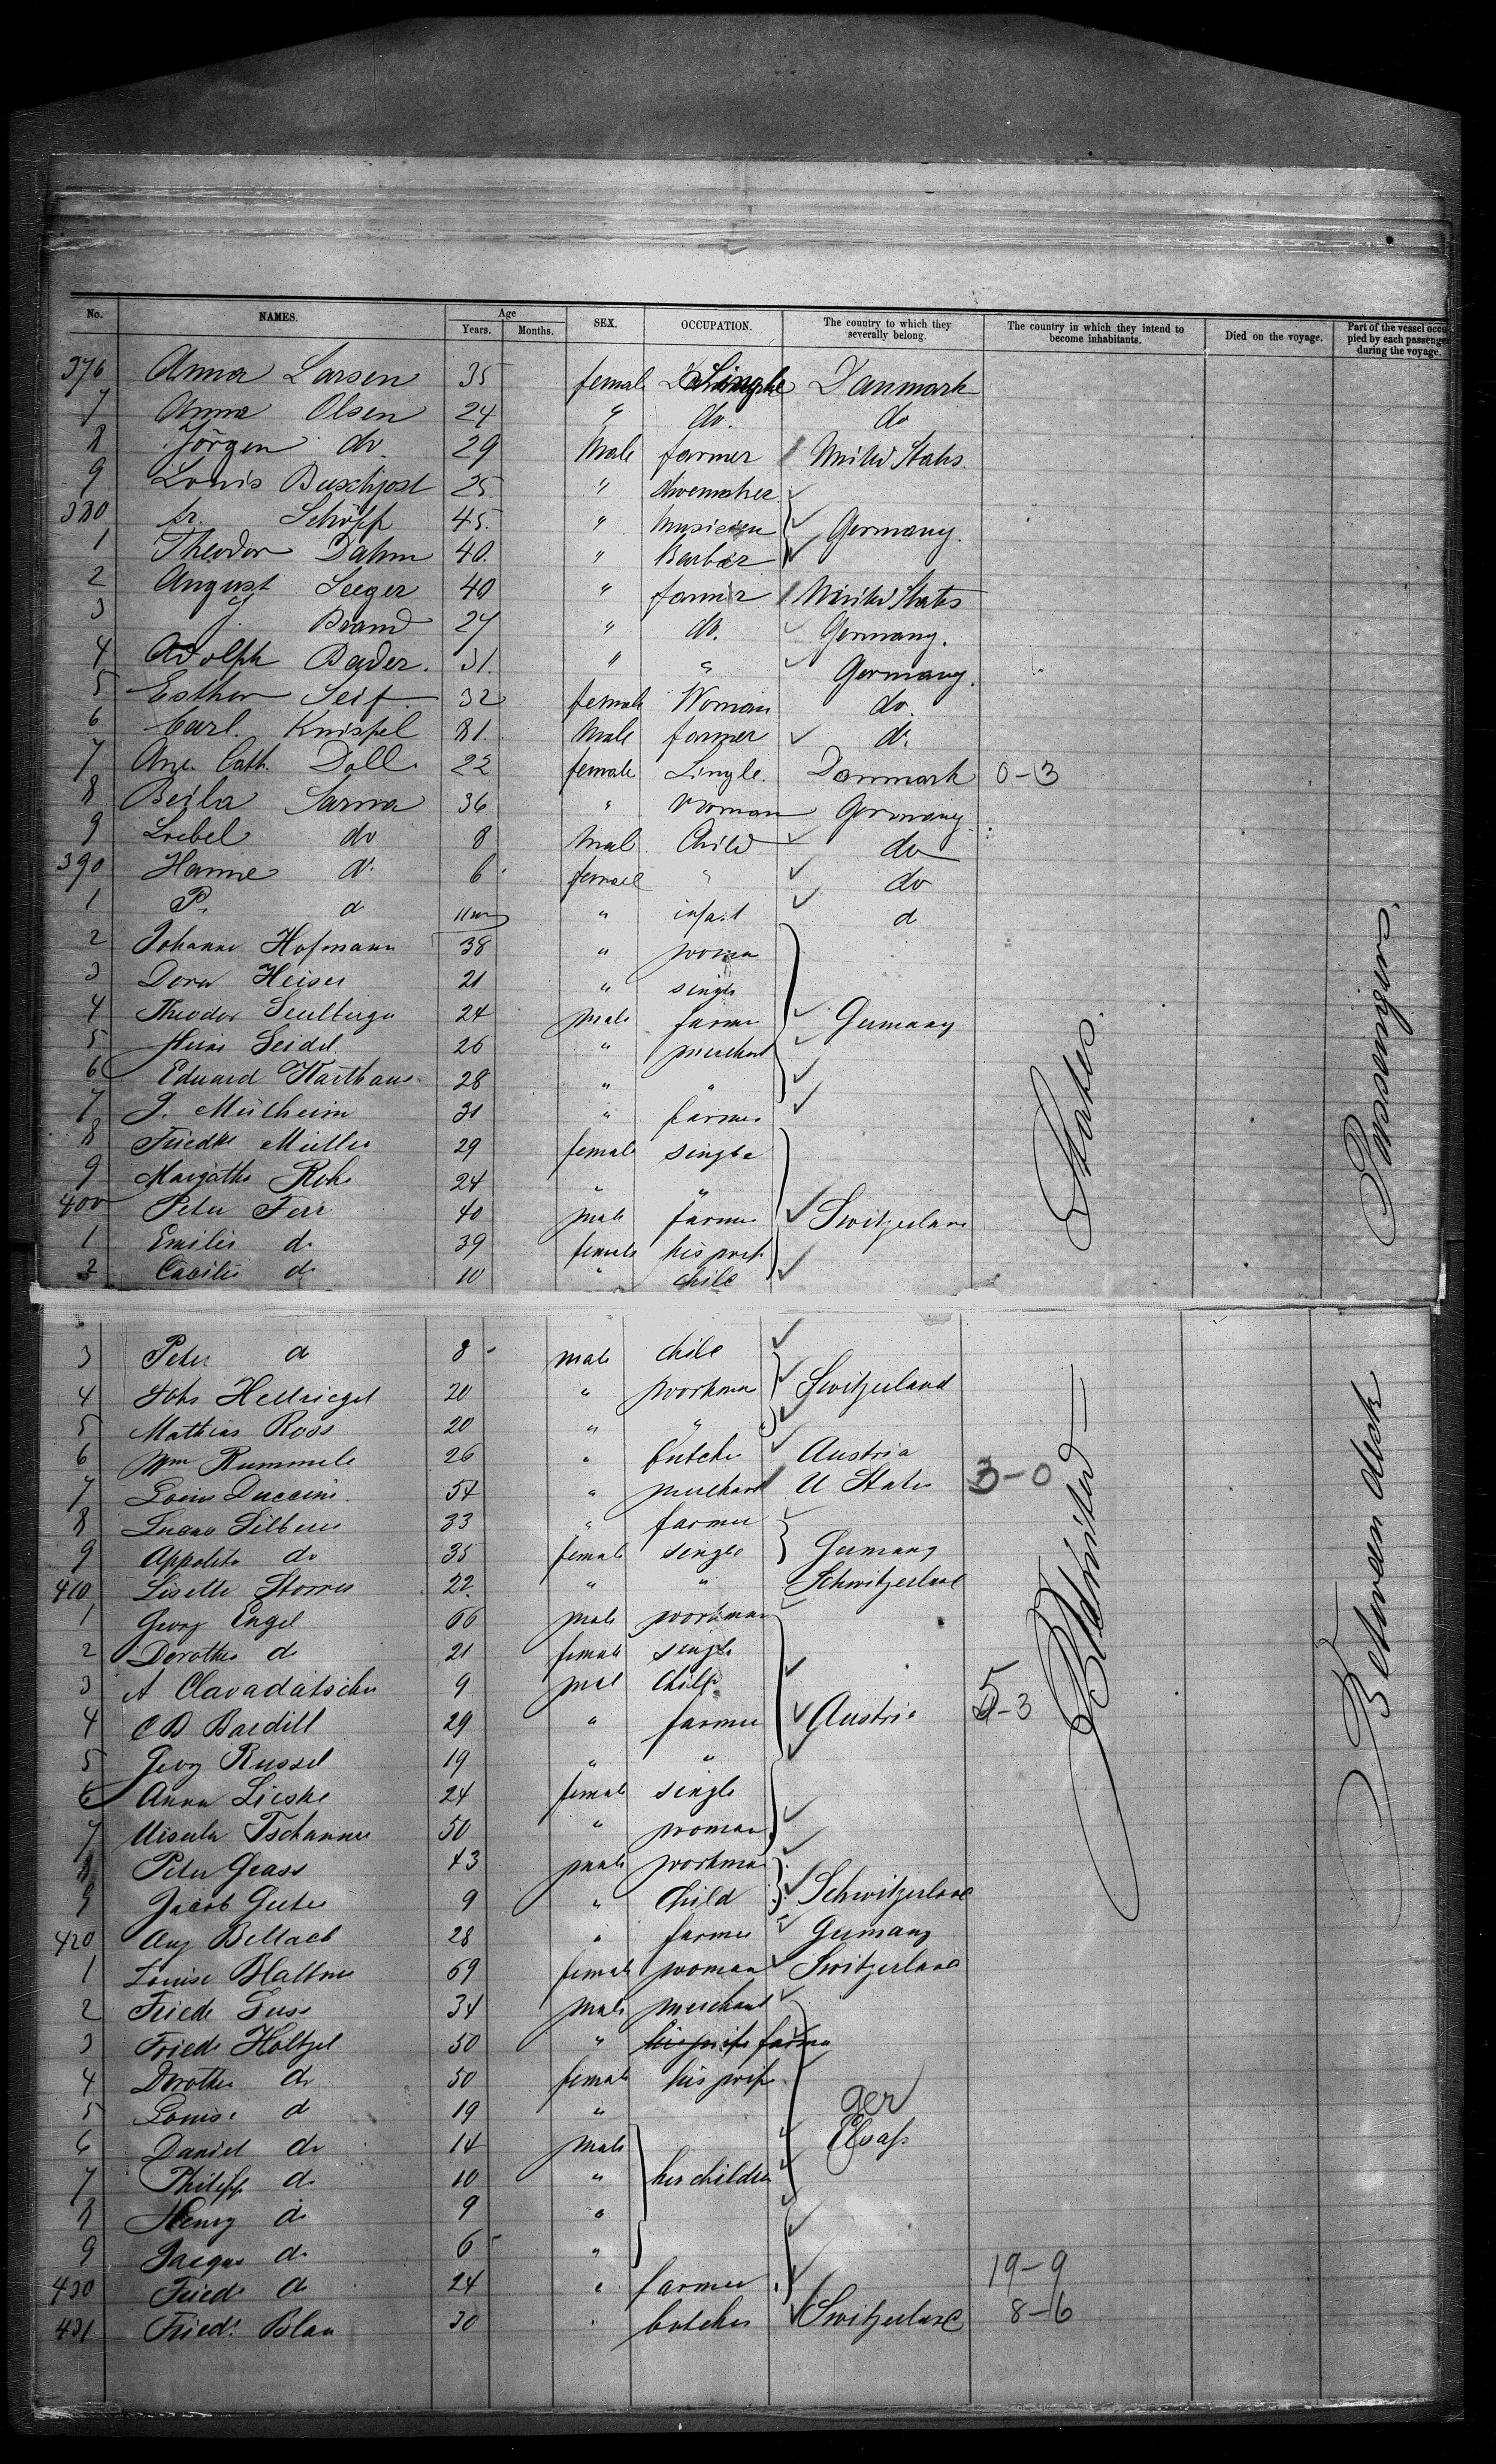 No. NAMES. Age Years. Months. SEX. OCCUPATION. The country to which they severally belong. The country in which they intend to become inhabitants. Died on the voyage. Part of the vessel occupied by each passenger during the voyage.
376 Anna Larsen 35 female Single Danmark
7 Anna Olsen 24 " do. do
8 Jörgen do. 29 Male farmer United States.
9 Louis Buschjost 25 " shoemaker
380 fr. Schöpf 45. " musician Germany.
1 Theodor Dahm 40. " Barber
2 August Seeger 40 " farmer United States
3 J. Brand 27 " do. Germany.
4 Adolph Bader. 31. " " Germany.
5 Esther Seif 32 female Woman do.
6 Carl. Knispel 81. Male farmer do.
7 Ane. Cath. Doll 22 female Single. Danmark 0-3
8 Beila Sarna 36 " woman Germany.
9 Loebel do 8 Mal Child do
390 Hanne d. 6 female " do
1 P. d 11 m " infant d
2 Johanne Hofmann 38 " woman
3 Dora Heiser 21 " single
4 Theodor 24 male farmer Germany
5 Seidel 26 " merchant
6 Eduard Karthaus 28 " "
7 J. Mülheim 31 " farmer
8 Friedke Müller 29 female single
9 Margathe 24 " "
400 Peter Ferr 40 male farmer Switzerland
1 Emilie do 39 female his wife
2 Cäcilie do 10 " child
3 Peter d 8 male child
4 Johs Hellriegel 20 " workman Switzerland
5 Mathias Ross 20 " "
6 Wm Rummele 26 " butcher Austria
7 Louis 54 " merchant U States 3-0
8 33 " farmer
9 Appolite do 35 female single Germany
410 Lisette 22 " " Schwitzerland
1 Georg Engel 66 male workman
2 Dorothe d 21 female single
3 A 9 male Child
4 C D Bardill 29 " farmer Austria 5-3
5 Georg Russel 19 " "
6 Anna Lieske 24 female single
7 Tschanner 50 " woman
8 Peter Grass 43 male workman
9 Jacob 9 " Child Schwitzerland
420 Aug 28 " farmer Germany
1 Louise 69 female woman Switzerland
2 Friedr 34 male merchant
3 Friedr Höltzel 50 " his wife farmer
4 Dorothe do 50 female his wife
5 Louise d 19 " ger
6 Daniel do 14 male Elsass
7 Philipp d 10 " her children
8 Henry do 9 "
9 Jacques d. 6 "
430 Friedr d 24 " farmer 19-9
431 Friedr. Blau 30 " butcher Switzerland 8-6
United States.
Between deck Passengers.